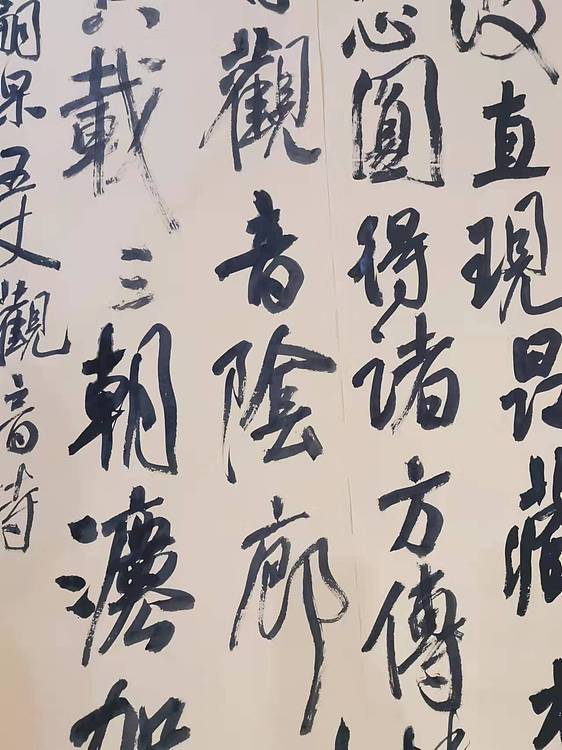 直現
心圓得諸方傳
觀音陰廊
載三朝
嗣杲五丈觀音寺